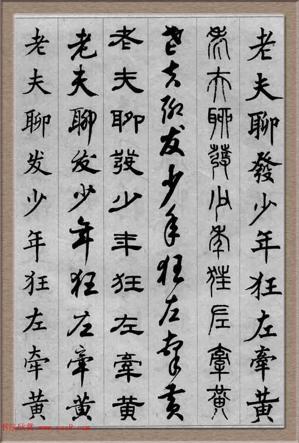 老夫聊發少年狂左牽黄
老夫聊發少年狂左牽黄
老夫聊发少年狂左牵黄
老夫聊發少年狂左牽黄
老夫聊发少年狂左牽黄
老夫聊发少年狂左牵黄